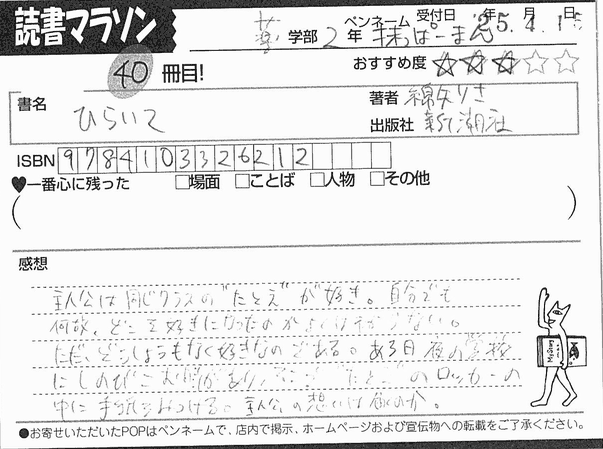 読書マラソン
薬 学部 2年 ペンネーム 抹っぱーまん 受付日 '25年.4月.1 日
40 冊目!
おすすめ度 ★★★☆☆
書名 ひらいて
著者 綿矢りさ
出版社 新潮社
ISBN 9784103326212
♥一番心に残った □場面 □ことば □人物 □その他
( )
感想
主人公は同じクラスの"たとえ"が好き。自分でも
何故、どこを好きになったのかよくは分からない。
ただ、どうしようもなく好きなのである。ある日夜の学校
にしのびこむ があり、 "たとえ"のロッカーの
中に手紙をみつける。主人公の想いは届くのか。
●お寄せいただいたPOPはペンネームで、店内で掲示、ホームページおよび宣伝物への転載をご了承ください。